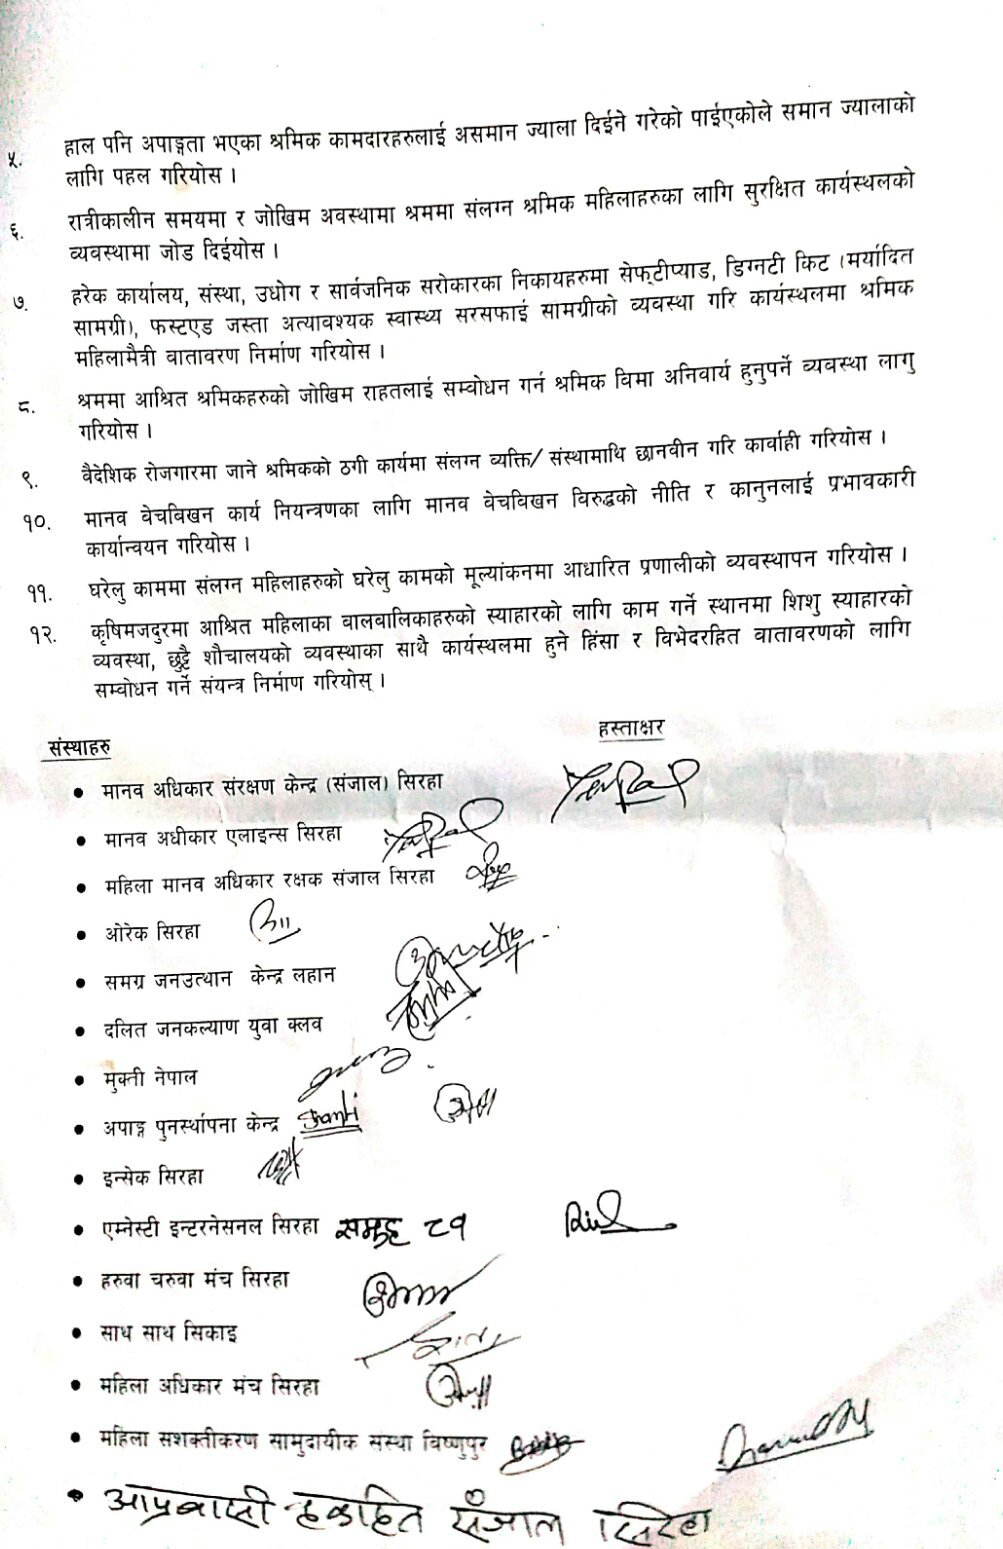 ५. हाल पनि अपाङ्गता भएका श्रमिक कामदारहरुलाई असमान ज्याला दिईने गरेको पाईएकोले समान ज्यालाको
लागि पहल गरियोस ।
६. रात्रीकालीन समयमा र जोखिम अवस्थामा श्रममा संलग्न श्रमिक महिलाहरुका लागि सुरक्षित कार्यस्थलको
व्यवस्थामा जोड दिईयोस ।
७. हरेक कार्यालय, संस्था, उधोग र सार्वजनिक सरोकारका निकायहरुमा सेफ्टीप्याड, डिग्नटी किट (मर्यादित
सामग्री), फस्टएड जस्ता अत्यावश्यक स्वास्थ्य सरसफाई सामग्रीको व्यवस्था गरि कार्यस्थलमा श्रमिक
महिलामैत्री वातावरण निर्माण गरियोस ।
८. श्रममा आश्रित श्रमिकहरुको जोखिम राहतलाई सम्बोधन गर्न श्रमिक विमा अनिवार्य हुनुपर्ने व्यवस्था लागु
गरियोस ।
९. वैदेशिक रोजगारमा जाने श्रमिकको ठगी कार्यमा संलग्न व्यक्ति/ संस्थामाथि छानवीन गरि कार्वाही गरियोस ।
१०. मानव वेचबिखन कार्य नियन्त्रणका लागि मानव वेचविखन विरुद्धको नीति र कानुनलाई प्रभावकारी
कार्यान्वयन गरियोस ।
११. घरेलु काममा संलग्न महिलाहरुको घरेलु कामको मूल्यांकनमा आधारित प्रणालीको व्यवस्थापन गरियोस ।
१२. कृषिमजदुरमा आश्रित महिलाका वालवालिकाहरुको स्याहारको लागि काम गर्ने स्थानमा शिशु स्याहारको
व्यवस्था, छुट्टै शौचालयको व्यवस्थाका साथै कार्यस्थलमा हुने हिंसा र विभेदरहित वातावरणको लागि
सम्वोधन गर्ने संयन्त्र निर्माण गरियोस् ।
संस्थाहरु हस्ताक्षर
• मानव अधिकार संरक्षण केन्द्र (संजाल) सिरहा
• मानव अधीकार एलाइन्स सिरहा
• महिला मानव अधिकार रक्षक संजाल सिरहा
• ओरेक सिरहा
• समग्र जनउत्थान केन्द्र लहान
• दलित जनकल्याण युवा क्लव
• मुक्ती नेपाल
• अपाङ्ग पुनर्स्थापना केन्द्र Shanti
• इन्सेक सिरहा
• एम्नेस्टी इन्टरनेसनल सिरहा समुह ८१
• हरुवा चरुवा मंच सिरहा
• साथ साथ सिकाइ
• महिला अधिकार मंच सिरहा
• महिला सशक्तीकरण सामुदायीक संस्था विष्णुपुर
• आप्रवासी हकहित संजाल सिरहा